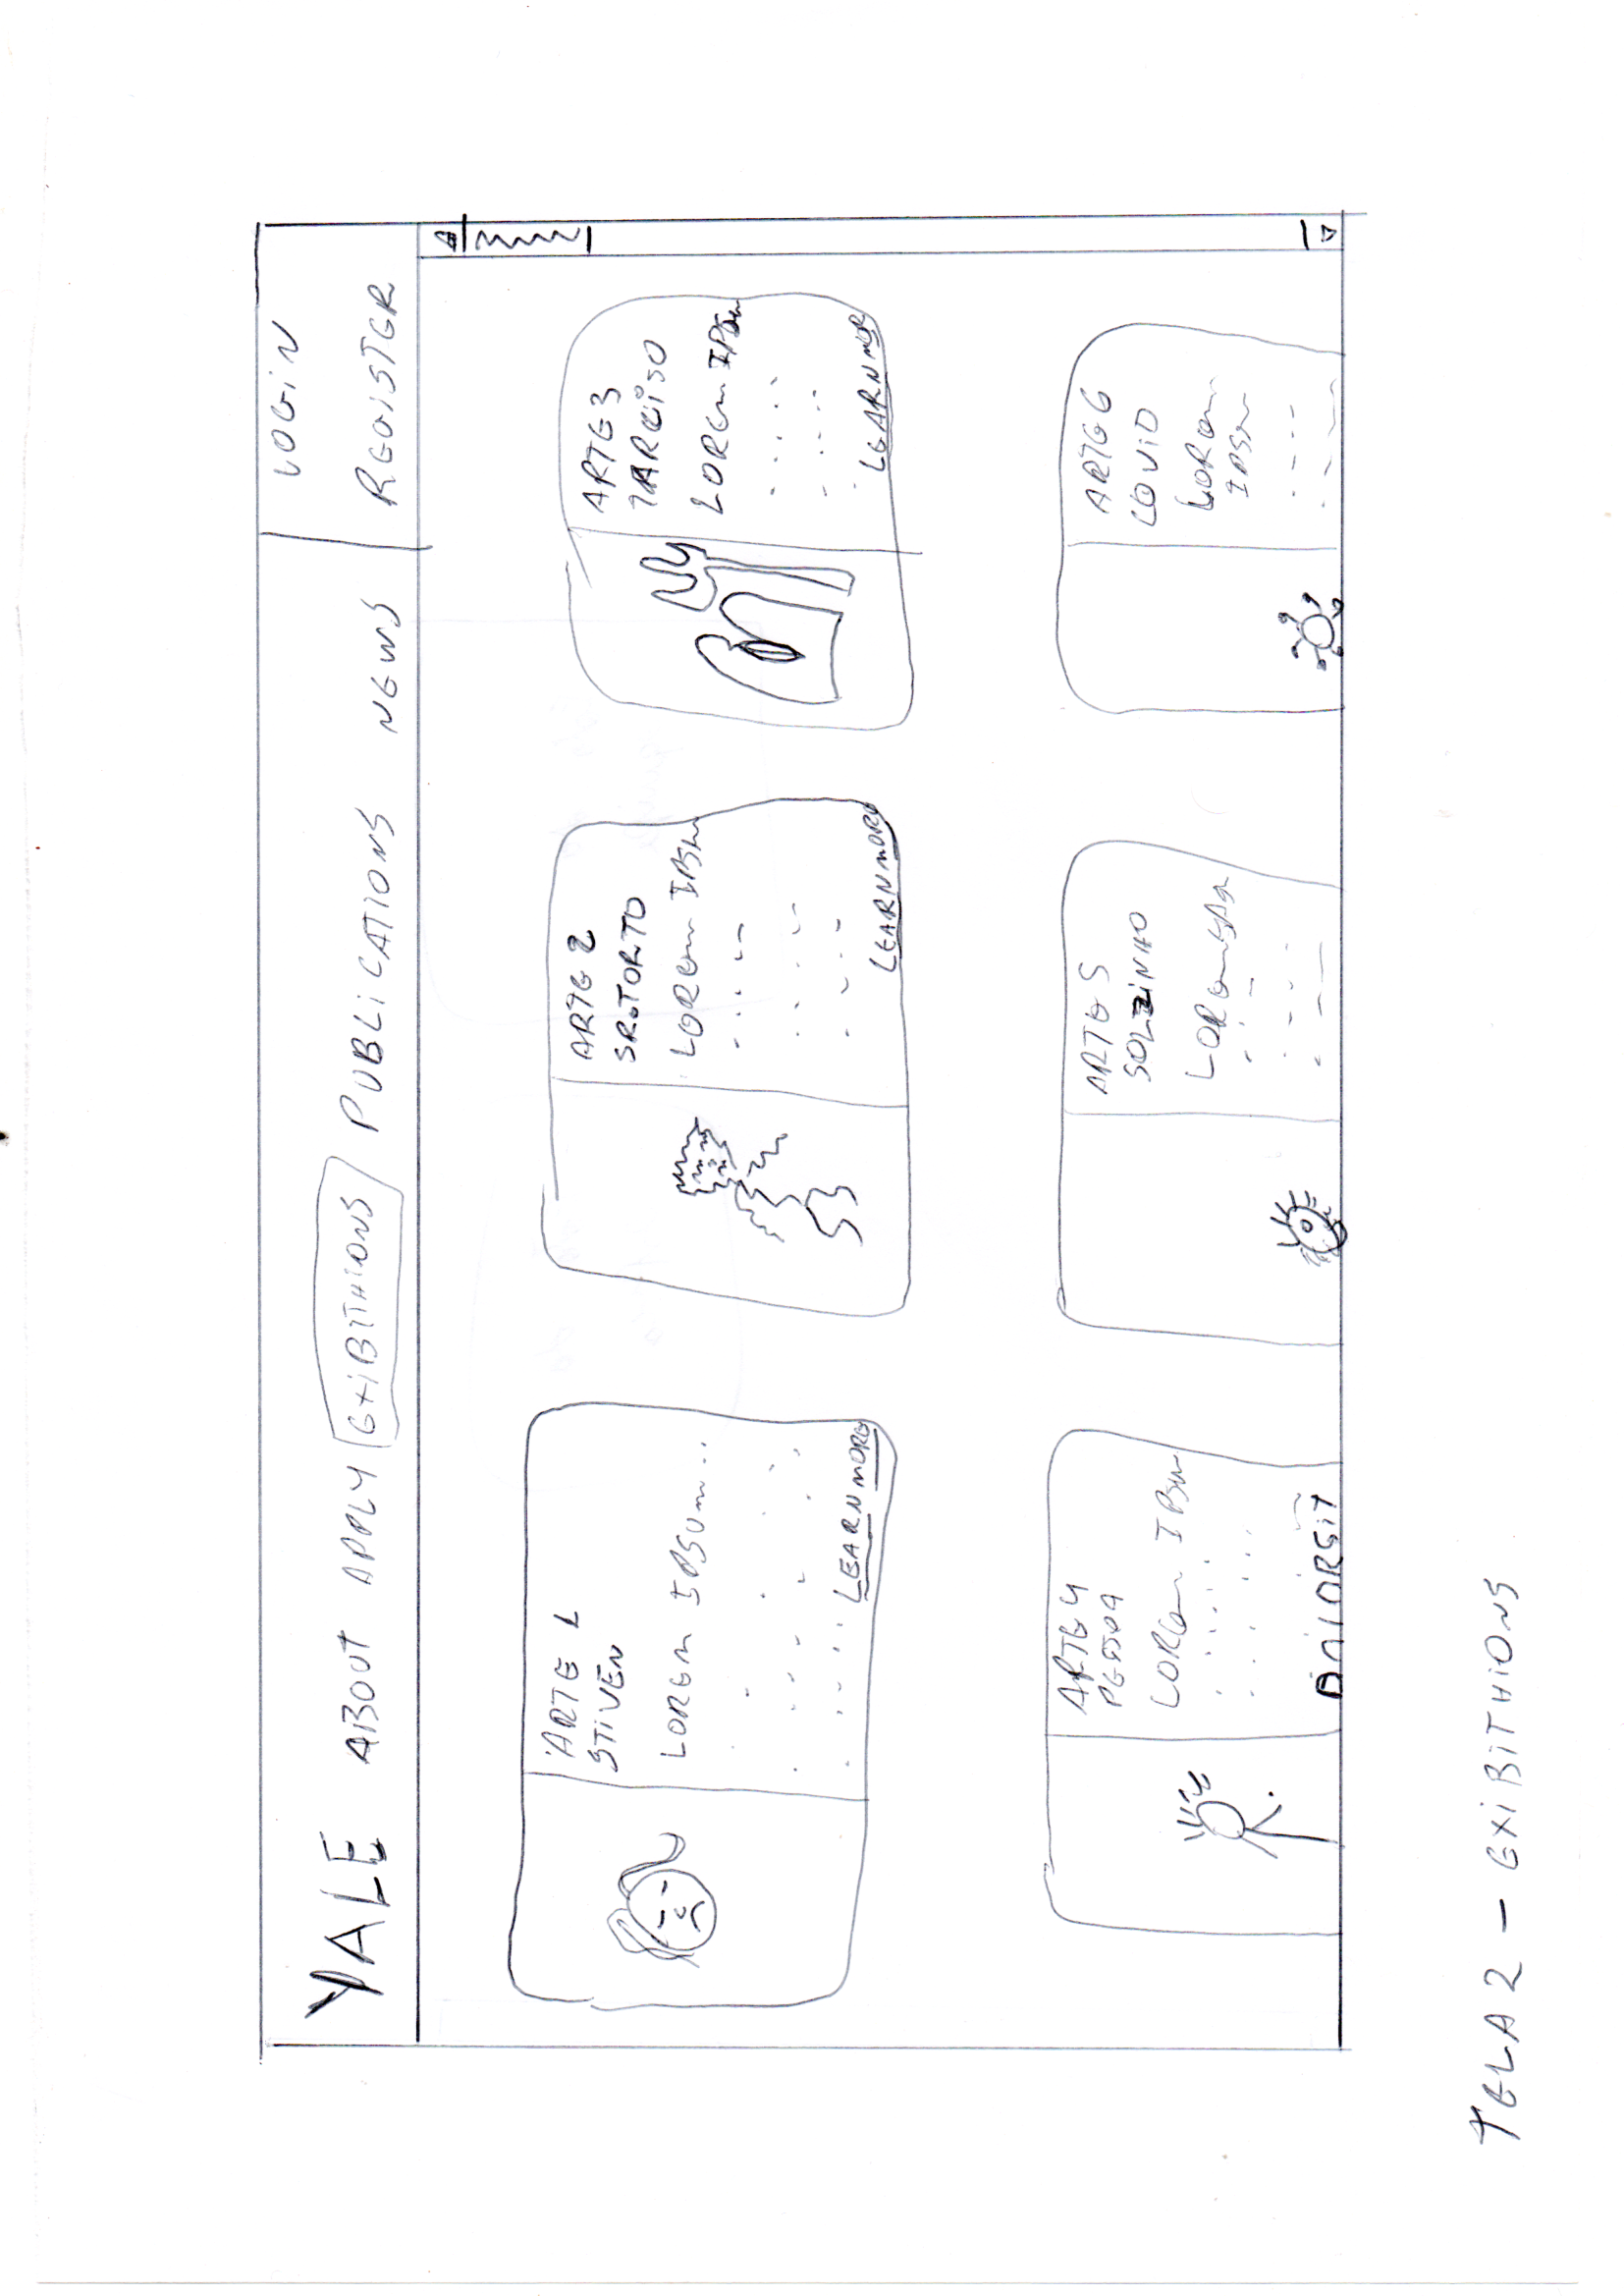 YALE ABOUT APPLY EXIBITHIONS PUBLICATIONS NEWS
LOGIN
REGISTER
ARTE 1
STIVEN
LOREM IPSUM...
LEARN MORE
ARTE 2
SR. TORTO
LOREM IPSM
LEARN MORE
ARTE 3
TARCISO
LOREM IPSM
LEARN MOR
ARTE 4
PESSOA
LOREM IPSM
ARTE 5
SOLZINHO
LOREM
ARTE 6
COVID
LOREM
IPSM
TELA 2 - EXIBITHIONS